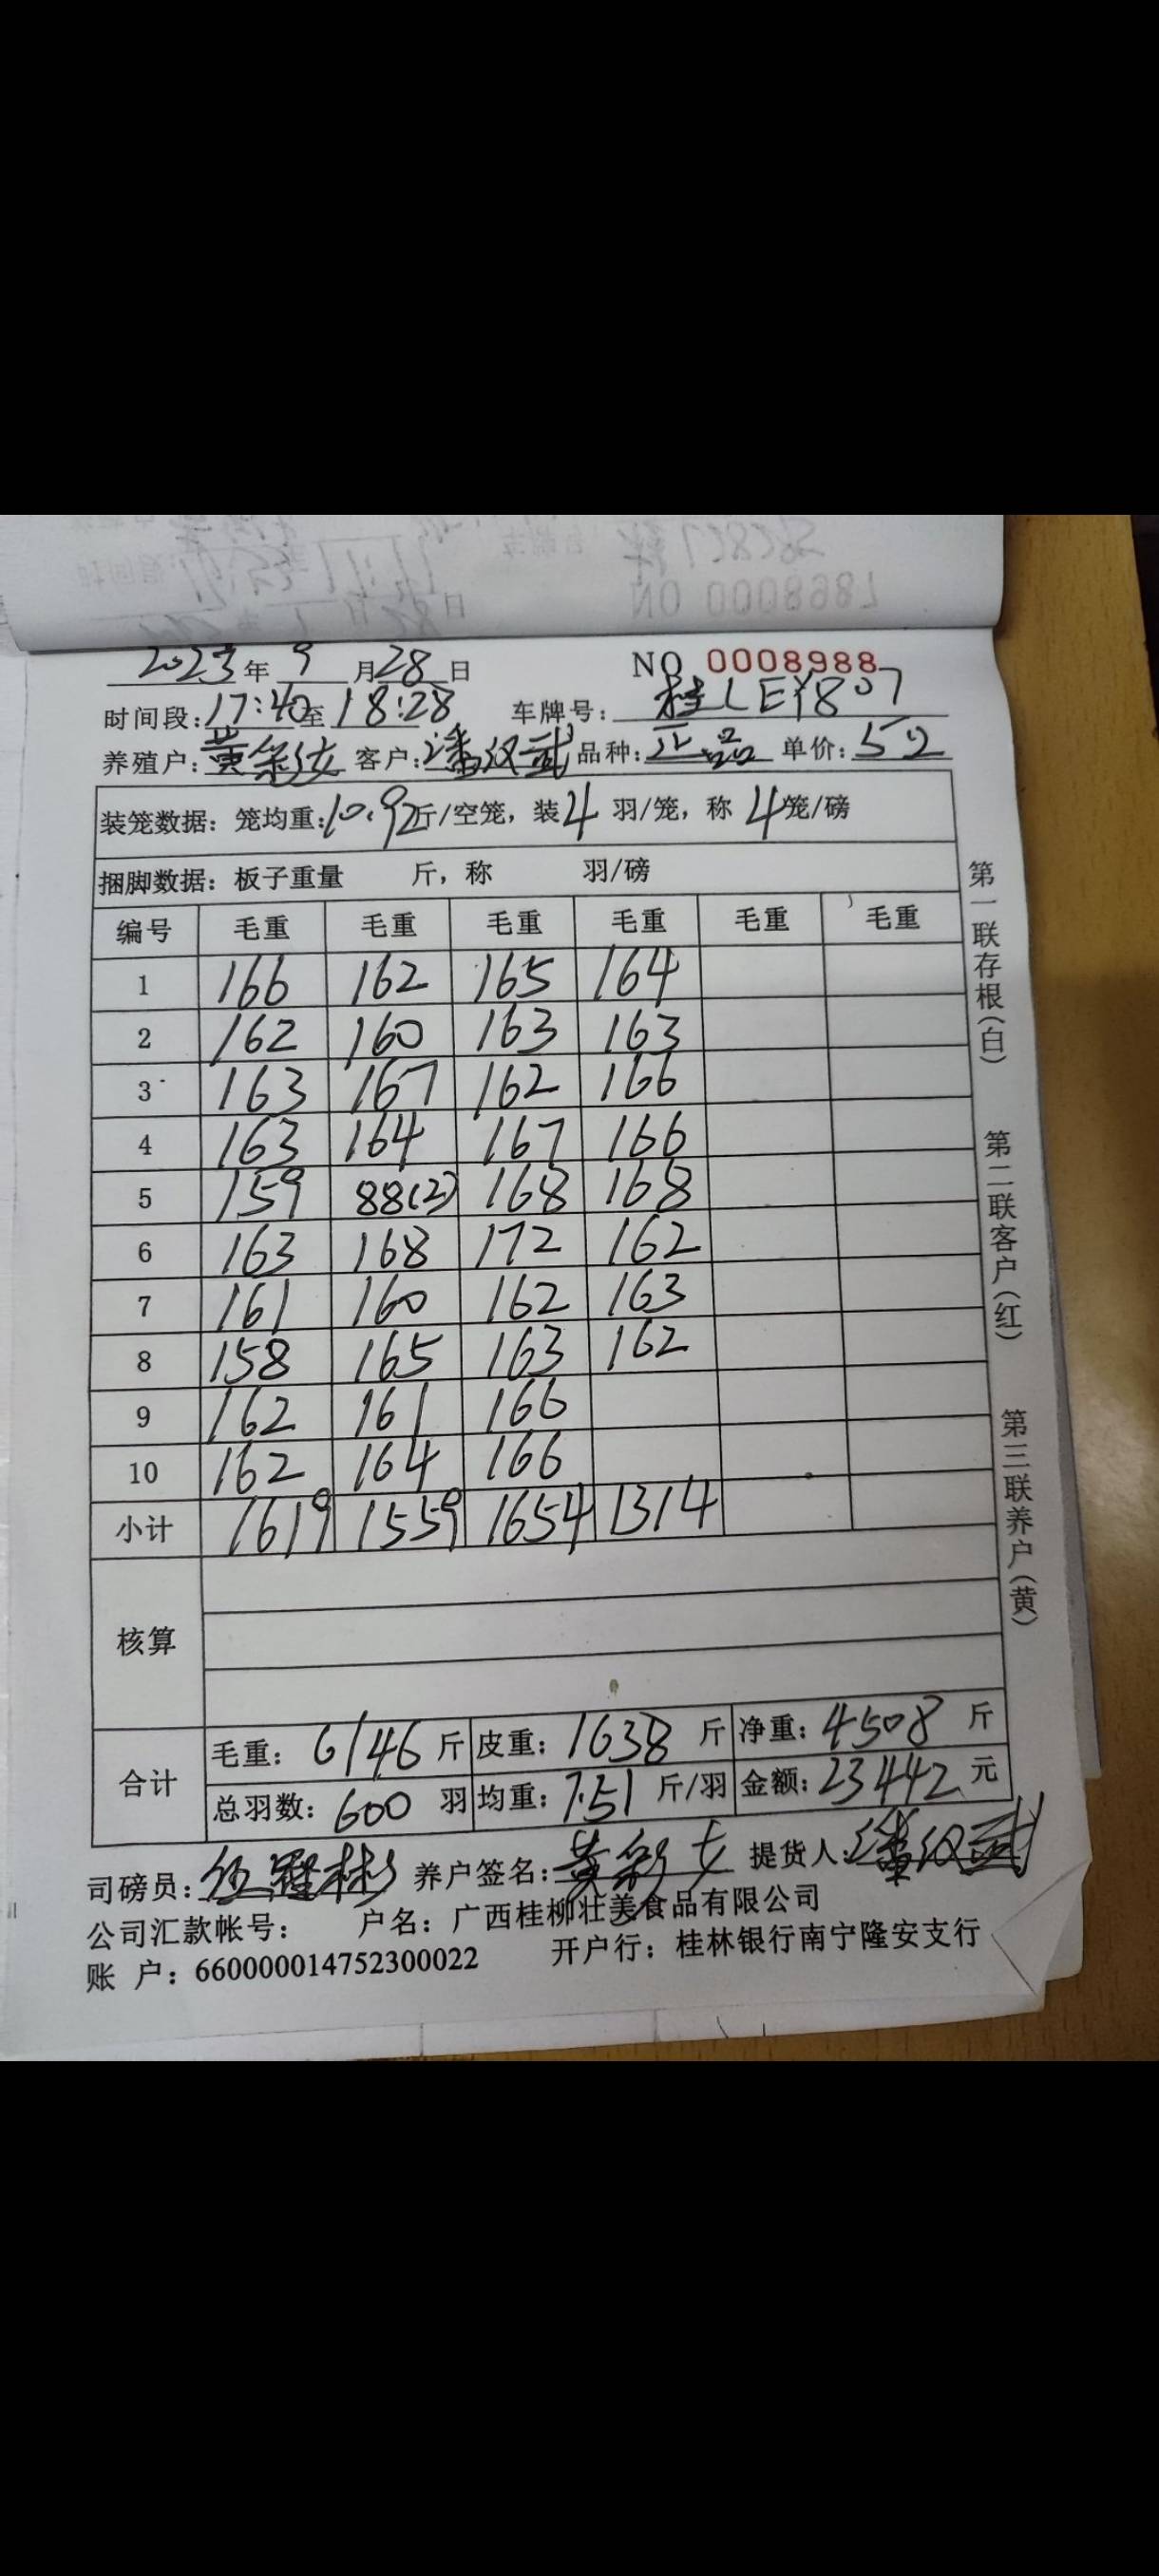 2023年 9 月28日 NO 0008988
时间段:17:40至18:28 车牌号:桂LEY807
养殖户:黄彩女 客户:潘汉武 品种:正品 单价:5.2
装笼数据:笼均重:10.92斤/空笼,装4羽/笼,称4笼/磅
捆脚数据:板子重量 斤,称 羽/磅
编号 毛重 毛重 毛重 毛重 毛重 毛重
1 166 162 165 164
2 162 160 163 163
3 163 167 162 166
4 163 164 167 166
5 159 88(2) 168 168
6 163 168 172 162
7 161 160 162 163
8 158 165 163 162
9 162 161 166
10 162 164 166
小计 1619 1559 1654 1314
核算
合计
毛重:6146斤 皮重:1638斤 净重:4508斤
总羽数:600羽 均重:7.51斤/羽 金额:23442元
司磅员:伍冠彬 养户签名:黄彩女 提货人:潘汉武
公司汇款帐号: 户名:广西桂柳壮美食品有限公司
账 户:660000014752300022 开户行:桂林银行南宁隆安支行
第一联存根(白) 第二联客户(红) 第三联养户(黄)